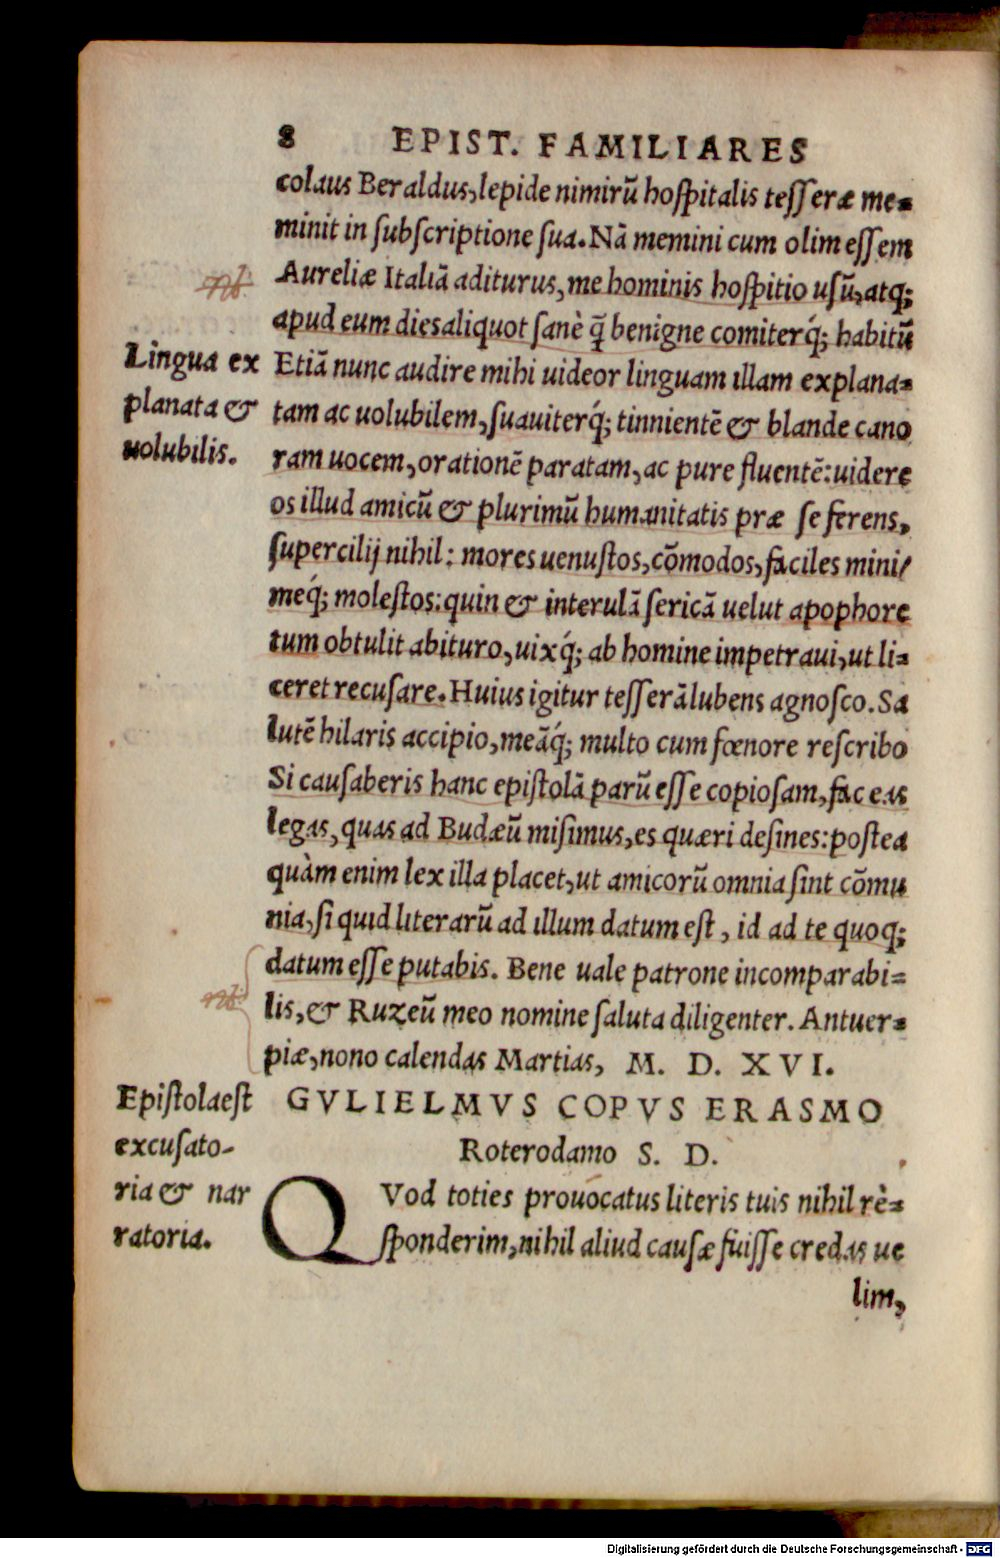 8 EPIST. FAMILIARES
colaus Beraldus, lepide nimirũ hoſpitalis teſſeræ me-
minit in ſubſcriptione ſua. Nã memini cum olim eſſem
Aureliæ Italiã aditurus, me hominis hoſpitio uſũ, atq;
apud eum dies aliquot ſanè q̃ benigne comiterq́; habitũ
Etiã nunc audire mihi uideor linguam illam explana-
tam ac uolubilem, ſuauiterq́; tinnientẽ & blande cano
ram uocem, orationẽ paratam, ac pure fluentẽ: uidere
os illud amicũ & plurimũ humanitatis præ ſe ferens,
ſupercilij nihil: mores uenuſtos, cõmodos, faciles mini/
meq́; moleſtos: quin & interulã ſericã uelut apophore
tum obtulit abituro, uixq́; ab homine impetraui, ut li-
ceret recuſare. Huius igitur teſſerã lubens agnoſco. Sa
lutẽ hilaris accipio, meãq́; multo cum fœnore reſcribo
Si cauſaberis hanc epiſtolã parũ eſſe copioſam, fac eas
legas, quas ad Budæũ miſimus, es quæri deſines: poſtea
quàm enim lex illa placet, ut amicorũ omnia ſint cõmu
nia, ſi quid literarũ ad illum datum eſt, id ad te quoq;
datum eſſe putabis. Bene uale patrone incomparabi-
lis, & Ruzeũ meo nomine ſaluta diligenter. Antuer-
piæ, nono calendas Martias, M. D. XVI.
GVLIELMVS COPVS ERASMO
Roterodamo S. D.
QVod toties prouocatus literis tuis nihil rè-
ſponderim, nihil aliud cauſæ fuiſſe credas ue
lim,
Lingua ex
planata &
uolubilis.
Epiſtola eſt
excuſato-
ria & nar
ratoria.
Digitalisierung gefördert durch die Deutsche Forschungsgemeinschaft - DFG